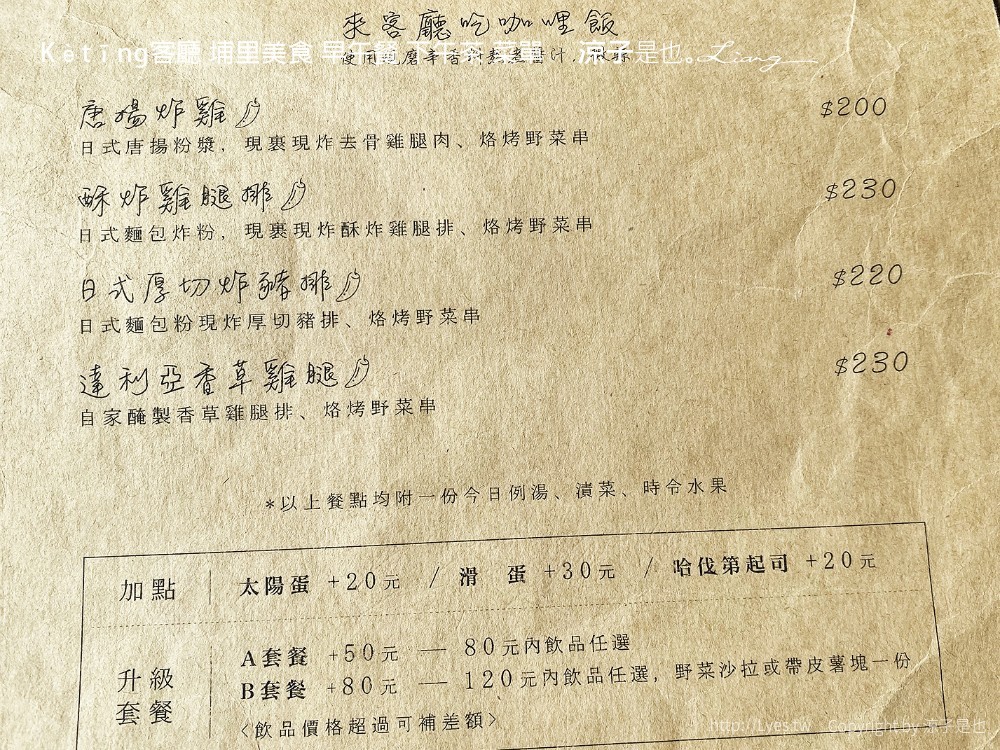 來客廳吃咖哩飯
Keting客廳 埔里美食 早午餐 下午茶 菜單 涼子是也。Liang
唐揚炸雞 $200
日式唐揚粉漿，現裹現炸去骨雞腿肉、烙烤野菜串
酥炸雞腿排 $230
日式麵包炸粉，現裹現炸酥炸雞腿排、烙烤野菜串
日式厚切炸豬排 $220
日式麵包粉現炸厚切豬排、烙烤野菜串
達利亞香草雞腿 $230
自家醃製香草雞腿排、烙烤野菜串
*以上餐點均附一份今日例湯、漬菜、時令水果
加點 太陽蛋 +20元 / 滑 蛋 +30元 / 哈伐第起司 +20元
升級套餐
A套餐 +50元 — 80元內飲品任選
B套餐 +80元 — 120元內飲品任選，野菜沙拉或帶皮薯塊一份
<飲品價格超過可補差額>
http://Lyes.tw Copyright by 涼子是也